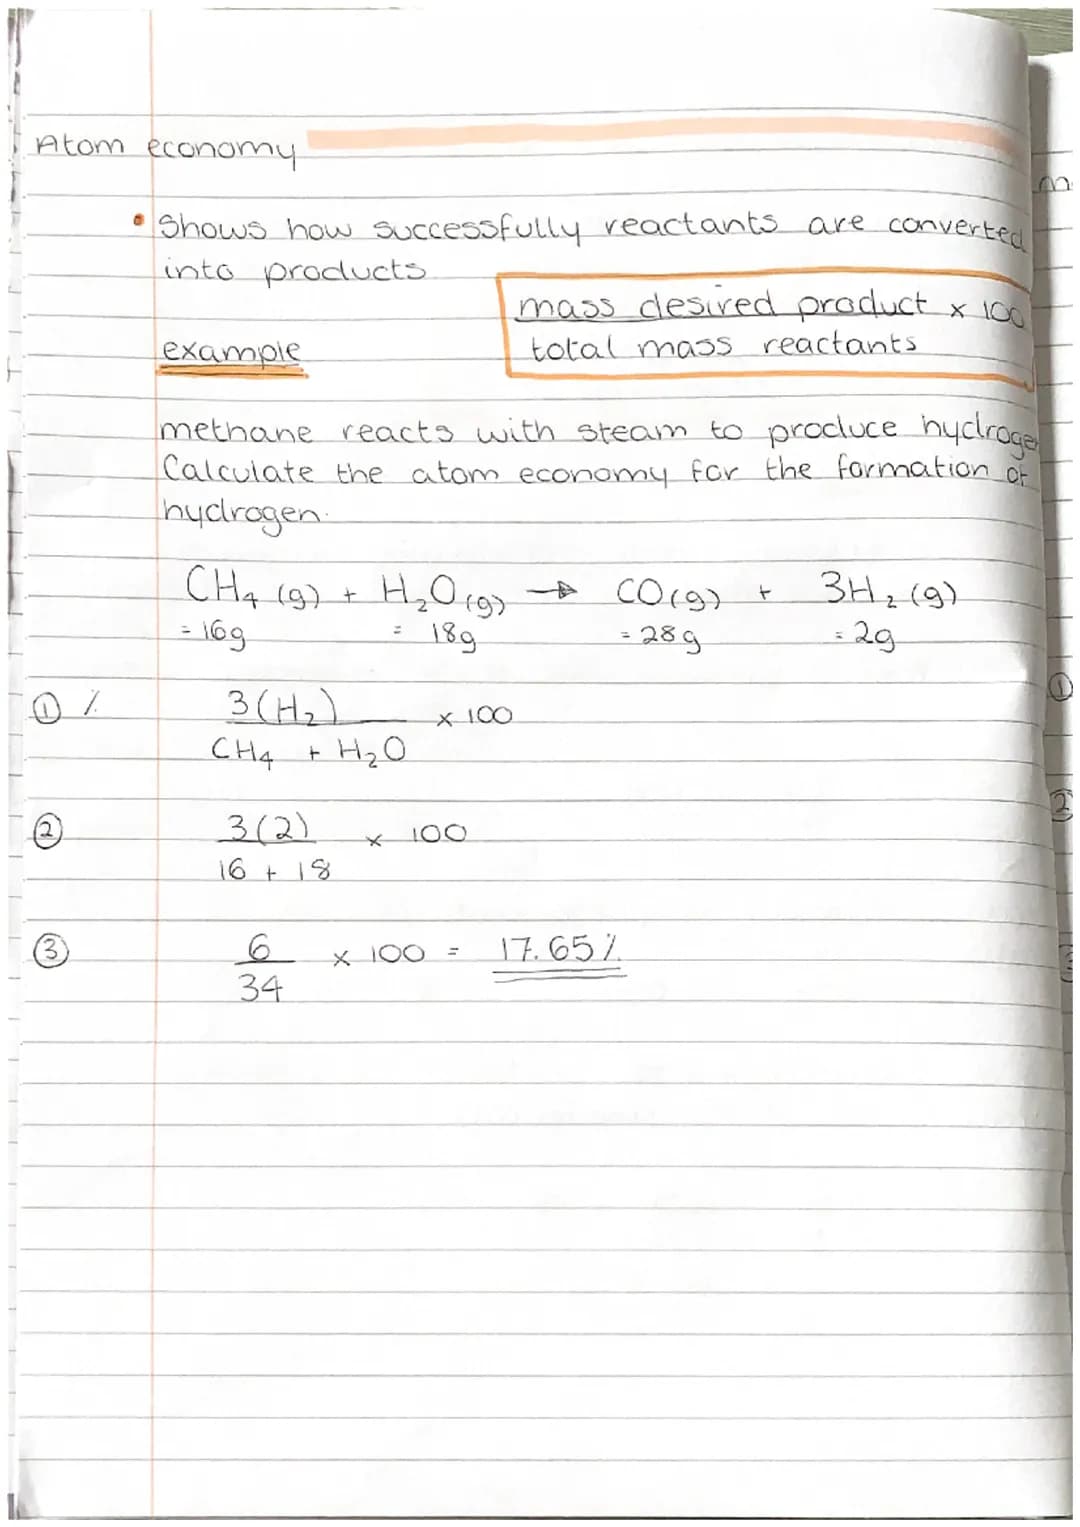 Atom economy
• Shows how successfully reactants are converted
into products
mass desired product x 100
total mass reactants
example
methane reacts with steam to produce hydroge
Calculate the atom economy for the formation of
hydrogen.
CH₄ (g) + H₂O (g) → CO(g) + 3H₂ (g)
= 16g = 18g = 28g = 2g
① % 3(H₂) x 100
CH₄ + H₂O
② 3(2) x 100
16 + 18
③ 6 x 100 = 17.65%
34